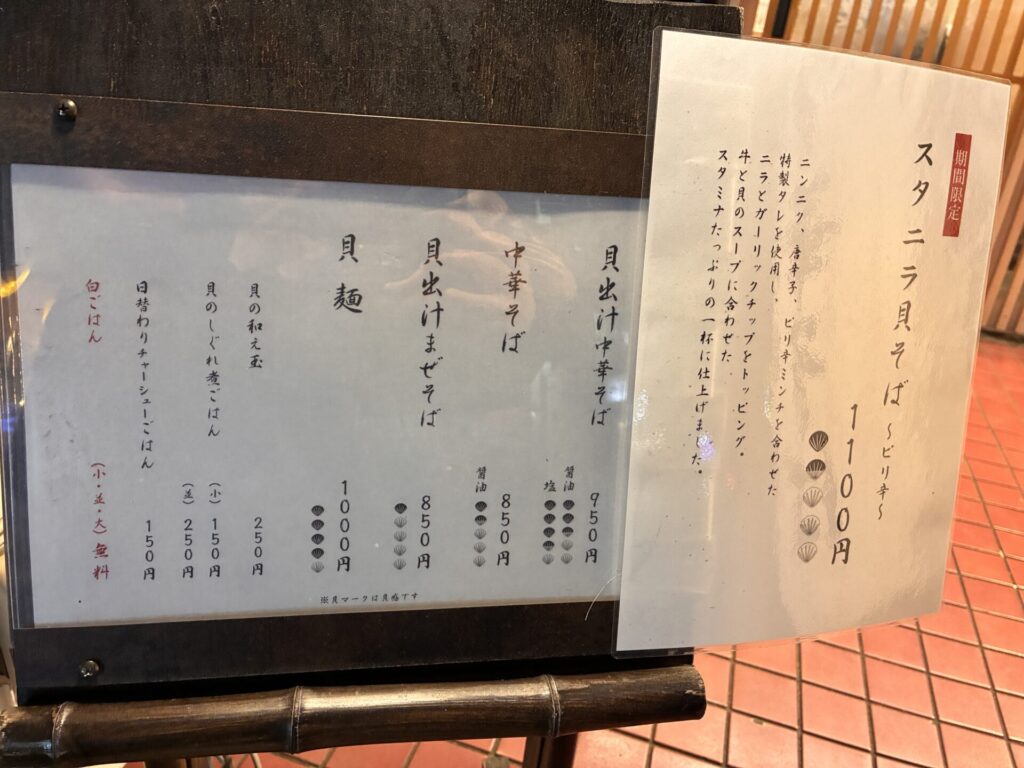 期間限定
スタニラ貝そば 〜ピリ辛〜
1100円
ニンニク、唐辛子、ピリ辛ミンチを合わせた
特製タレを使用し、
ニラとガーリックチップをトッピング。
牛と貝のスープに合わせた
スタミナたっぷりの一杯に仕上げました。
貝出汁中華そば 950円
醤油
塩
中華そば 850円
醤油
貝出汁まぜそば 850円
貝麺 1000円
貝の和え玉 250円
貝のしぐれ煮ごはん (小)150円
(並)250円
日替わりチャーシューごはん 150円
白ごはん (小・並・大)無料
※貝マークは貝感です